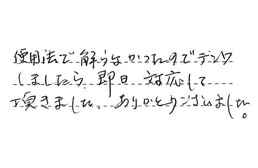 使用法で解らなかったのでデンワ
しましたら、即日対応して
頂きました。ありがとうございました。